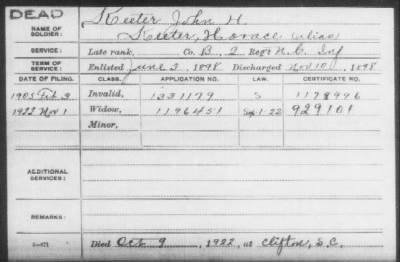 DEAD
NAME OF SOLDIER: Keeter John H.
Keeter, Horace (alias)
SERVICE: Late rank, Co. B, 2 Reg't N.C. Inf
TERM OF SERVICE: Enlisted June 3, 1898 Discharged Nov 10, 1898
DATE OF FILING. CLASS. APPLICATION NO. LAW. CERTIFICATE NO.
1905 Feb. 3 Invalid, 1331179 S 1178996
1922 Nov 1 Widow, 1196451 Sept-1-22 929101
Minor,
ADDITIONAL SERVICES:
REMARKS:
Died Oct 9, 1922, at Clifton, S.C.